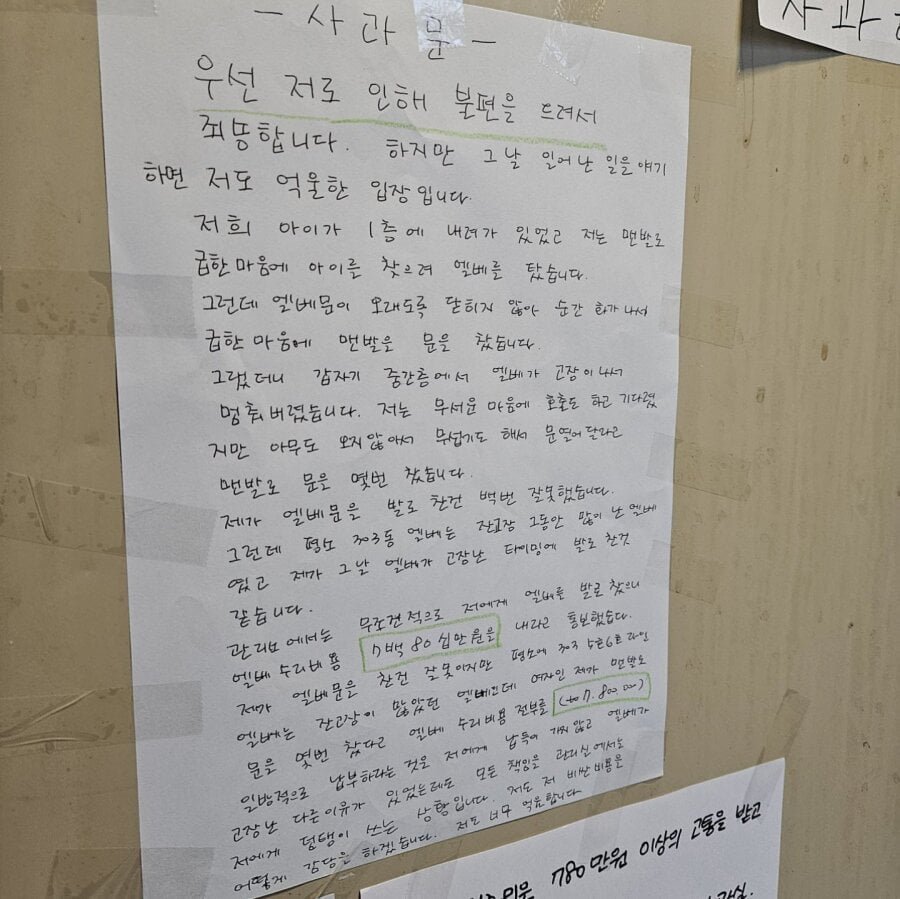 - 사 과 문 -
우선 저로 인해 불편을 드려서
죄송합니다. 하지만 그날 일어난 일을 얘기
하면 저도 억울한 입장입니다.
저희 아이가 1층에 내려가 있었고 저는 맨발로
급한 마음에 아이를 찾으려 엘베를 탔습니다.
그런데 엘베문이 오래도록 닫히지 않아 순간 화가 나서
급한 마음에 맨발을 문을 찼습니다.
그랬더니 갑자기 중간층에서 엘베가 고장이 나서
멈춰버렸습니다. 저는 무서운 마음에 호출도 하고 기다렸
지만 아무도 오지않아서 무섭기도 해서 문열어달라고
맨발로 문을 몇번 찼습니다.
제가 엘베문을 발로 찬건 백번 잘못했습니다.
그런데 평소 303동 엘베는 잔고장 그동안 많이 난 엘베
였고 제가 그날 엘베가 고장난 타이밍에 발로 찬것
같습니다.
관리소에서는 무조건적으로 저에게 엘베를 발로 찼으니
엘베 수리비용 7백 80 십만원을 내라고 통보했습니다.
제가 엘베문을 찬건 잘못이지만 평소에 303 5호6호라인
엘베는 잔고장이 많았던 엘베인데 여자인 제가 맨발로
문을 몇번 찼다고 엘베 수리비용 전부를 (7.800.000)
일방적으로 납부하라는 것은 저에게 납득이 가지않고 엘베가
고장난 다른이유가 있었는데도 모든 책임을 관리실에서는
저에게 덤탱이 쓰는 상황입니다. 저도 저 비싼비용을
어떻게 감당을 하겠습니다. 저도 너무 억울합니다
사과
780만원 이상의 고통을 받고